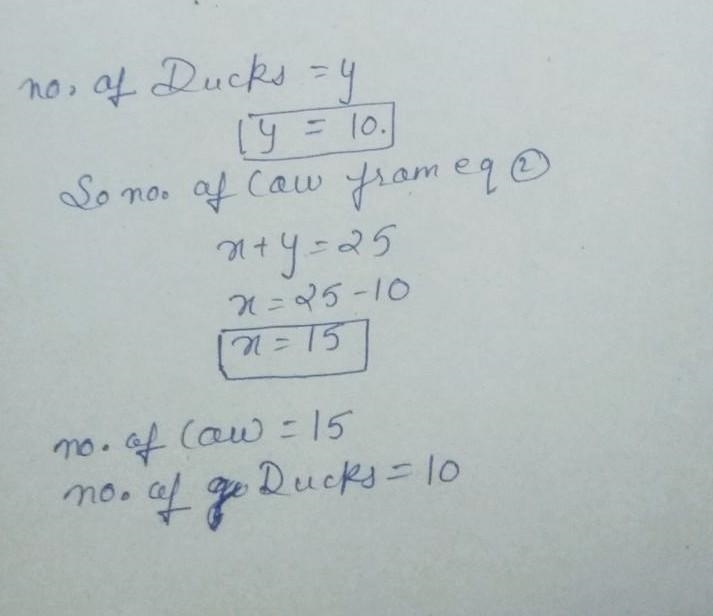 no. of Ducks = y
y = 10.
So no. of Cow from eq ②
x + y = 25
x = 25 - 10
x = 15
no. of Cow = 15
no. of Ducks = 10